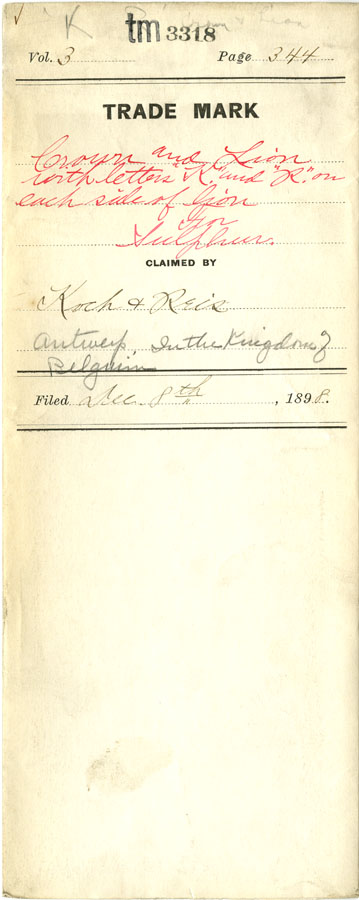 K
tm 3318
Vol. 3 Page 344
TRADE MARK
Crown and Lion
with letters "K." and "R." on
each side of Lion
for
Sulphur.
CLAIMED BY
Koch & Reis
Antwerp In the Kingdom of
Belguim
Filed Dec. 8th, 1898.